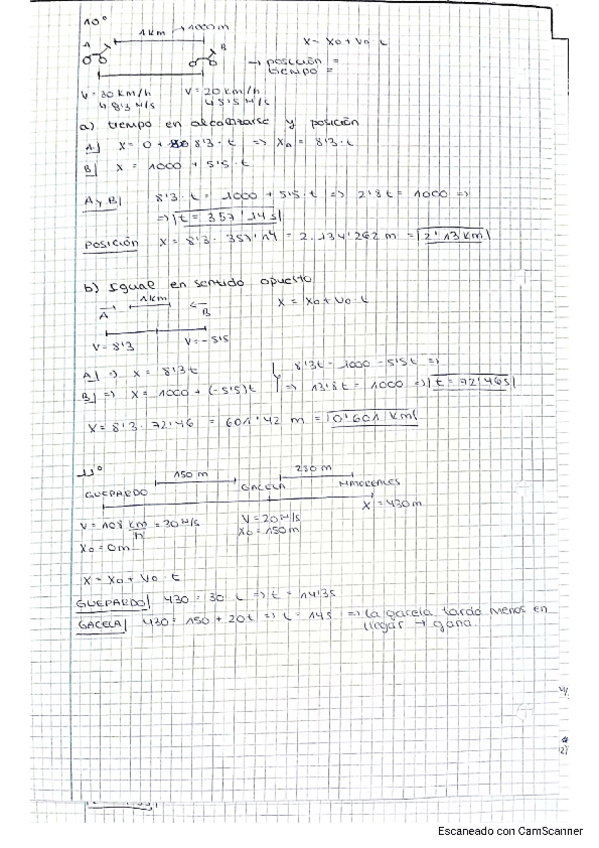 10º
1km → 1000m
A B
x = x0 + v0 · t
→ posición =
tiempo =
V = 30 km/h V = 20 km/h
48'3 m/s 45'5 m/s
a) tiempo en alcanzarse y posición
A| x = 0 + 8'3 · t => xA = 8'3 · t
B| x = 1000 + 5'5 · t
A y B| 8'3 · t = 1000 + 5'5 · t => 2'8t = 1000 =>
=> t = 357'143
Posición x = 8'3 · 357'14 = 2.134'262 m = 2'13 km
b) Igual en sentido opuesto
1km
A B
x = x0 + v0 · t
V = 8'3 V = -5'5
A| => x = 8'3t 8'3t = 1000 - 5'5t =>
B| => x = 1000 + (-5'5)t => 13'8t = 1000 => t = 72'46s
x = 8'3 · 72'46 = 601'42 m = 0'601 km
11º
150 m 280 m
GUEPARDO GACELA MATORRALES
x = 430m
V = 108 km/h = 30 m/s V = 20 m/s
x0 = 0m x0 = 150m
x = x0 + v0 · t
GUEPARDO| 430 = 30 · t => t = 14'3s
GACELA| 430 = 150 + 20t => t = 14s => la gacela tarda menos en
llegar → gana.
Escaneado con CamScanner